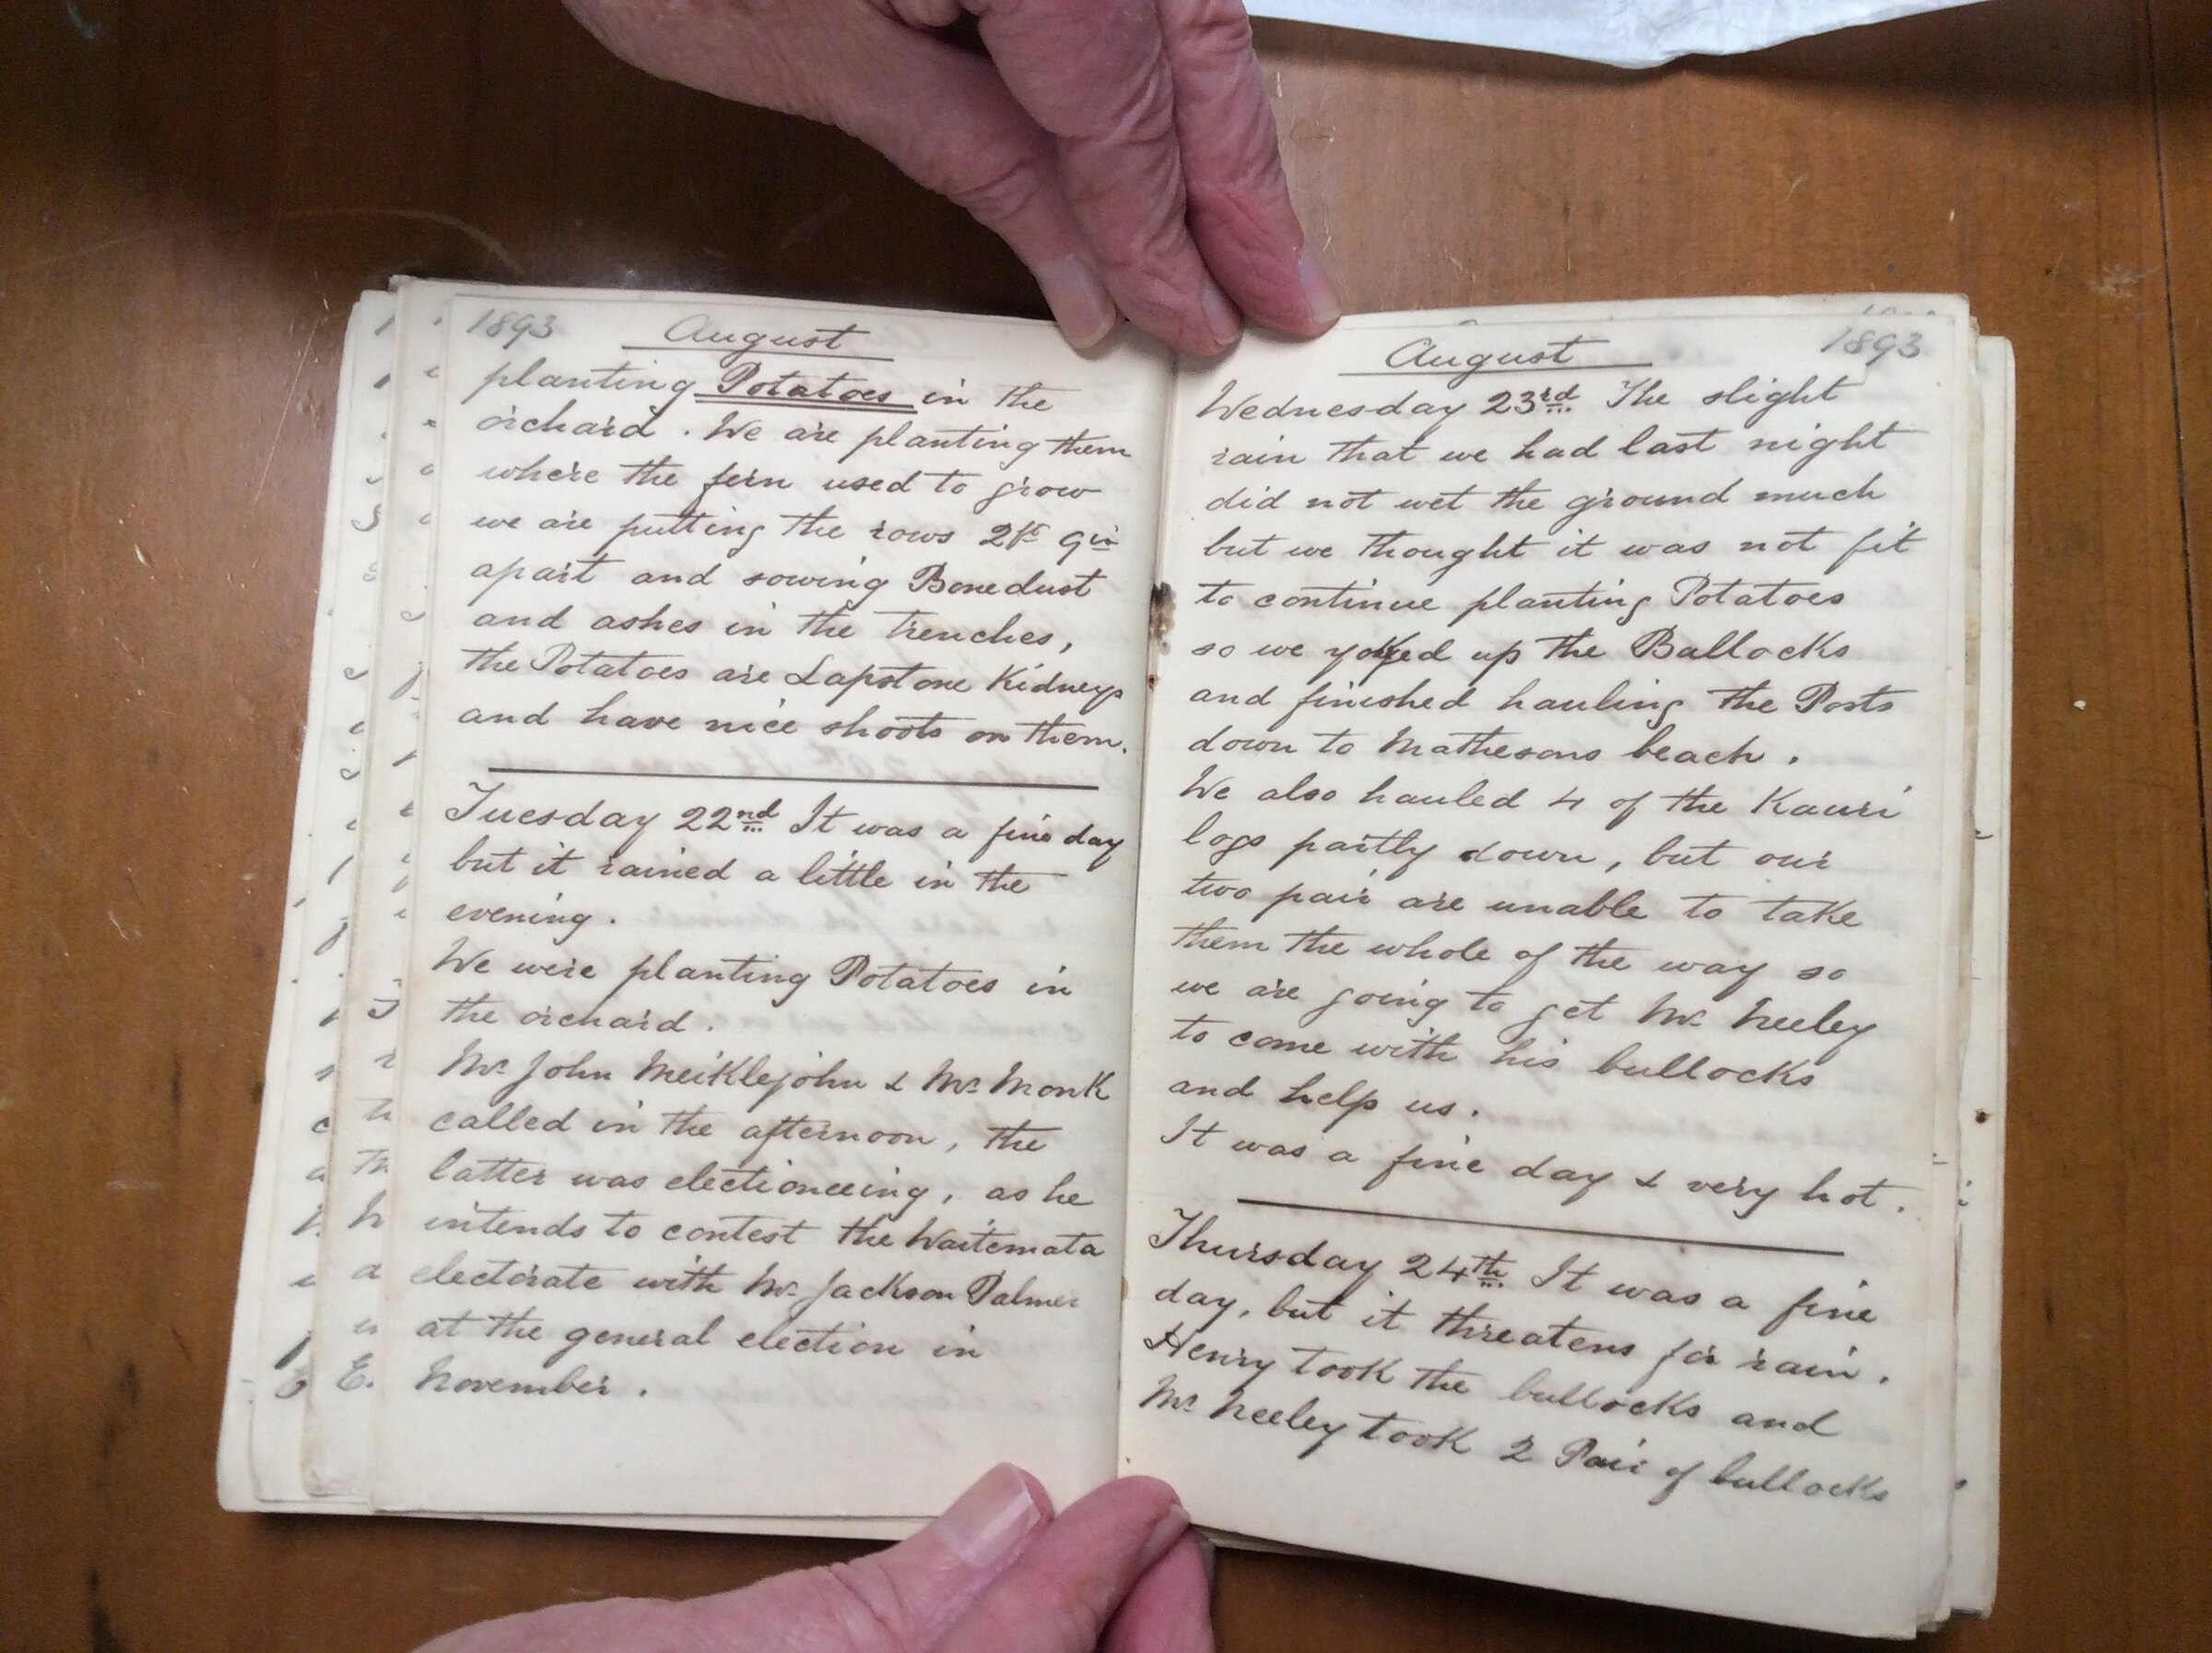 1893 August
planting Potatoes in the
orchard. We are planting them
where the fern used to grow
we are putting the rows 2ft 9in
apart and sowing Bonedust
and ashes in the trenches,
the Potatoes are Lapstone Kidneys
and have nice shoots on them.
Tuesday 22nd It was a fine day
but it rained a little in the
evening.
We were planting Potatoes in
the orchard.
Mr John Meiklejohn & Mr Monk
called in the afternoon, the
latter was electioneeing, as he
intends to contest the Waitemata
electorate with Mr Jackson Palmer
at the general election in
November.
August 1893
Wednesday 23rd. The slight
rain that we had last night
did not wet the ground much
but we thought it was not fit
to continue planting Potatoes
so we yoked up the Bullocks
and finished hauling the Posts
down to Mathesons beach.
We also hauled 4 of the Kauri
logs partly down, but our
two pair are unable to take
them the whole of the way so
we are going to get Mr Neeley
to come with his bullocks
and help us.
It was a fine day & very hot.
Thursday 24th. It was a fine
day, but it threatens for rain.
Henry took the bullocks and
Mr Neeley took 2 Pair of bullocks